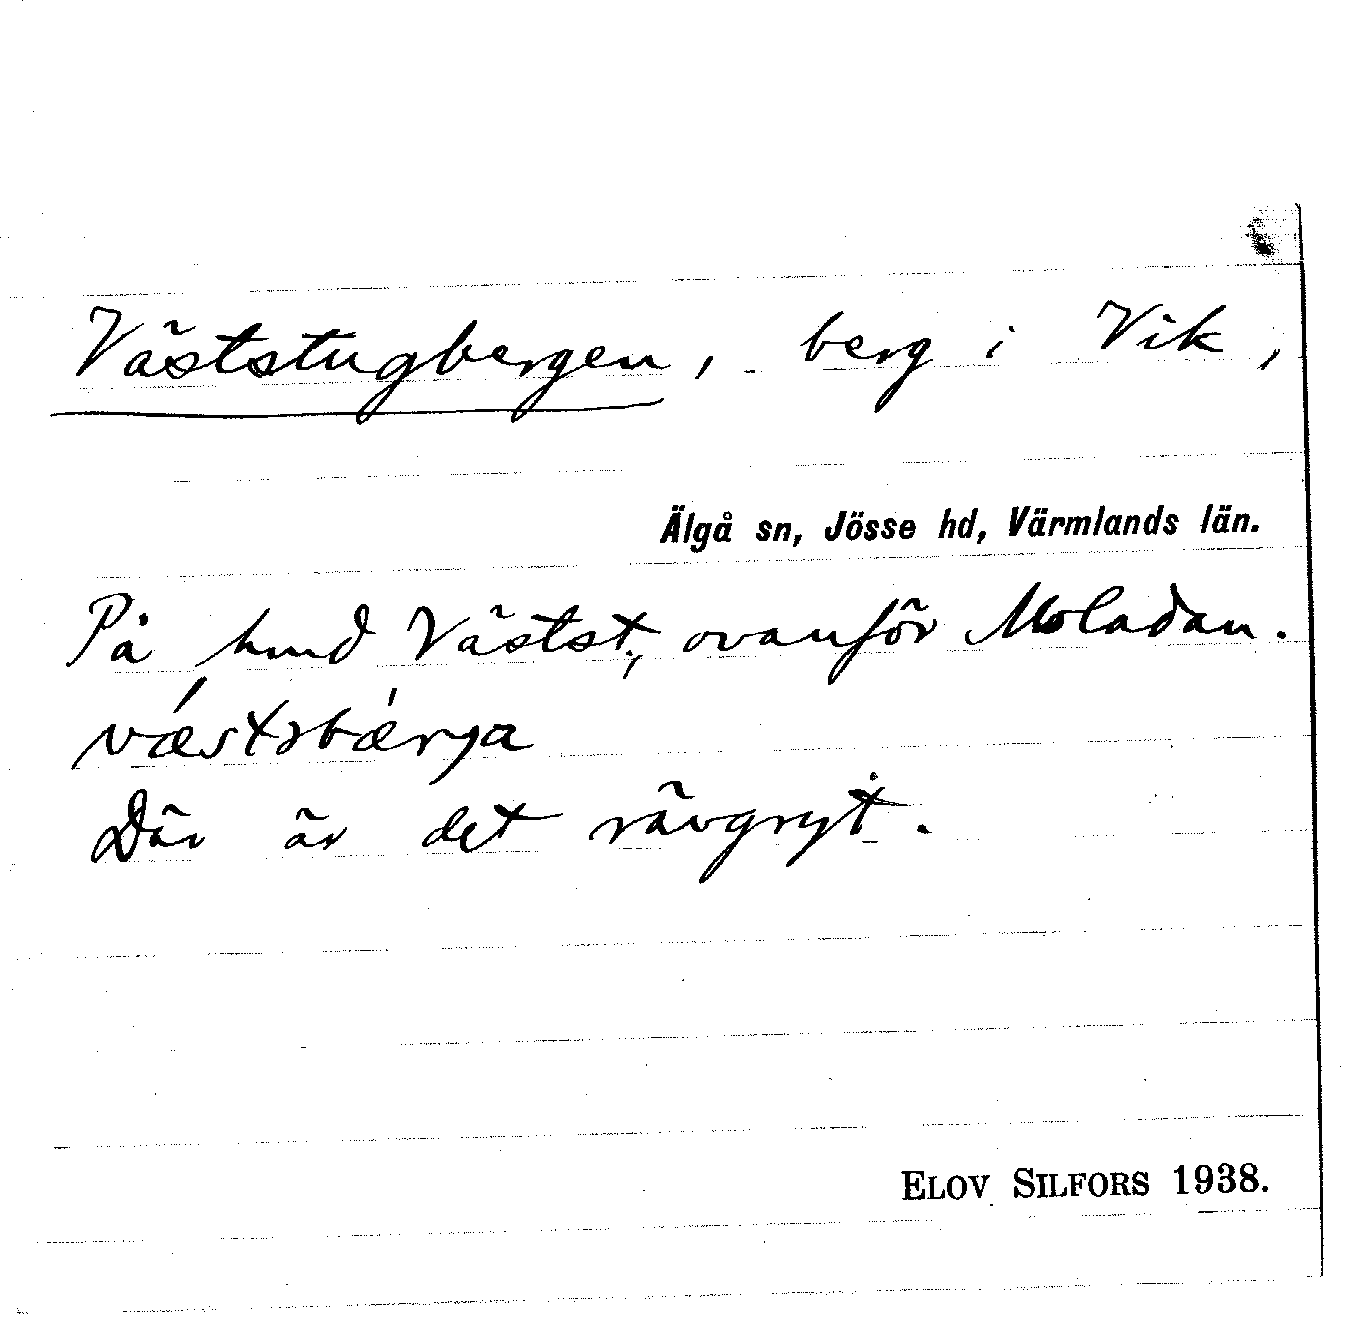 Väststugbergen, berg i Vik,
Älgå sn, Jösse hd, Värmlands län.
På hmd Västst., ovanför Moladan.
vǽstsbæ̀rja
Där är det rävgryt.
ELOV SILFORS 1938.